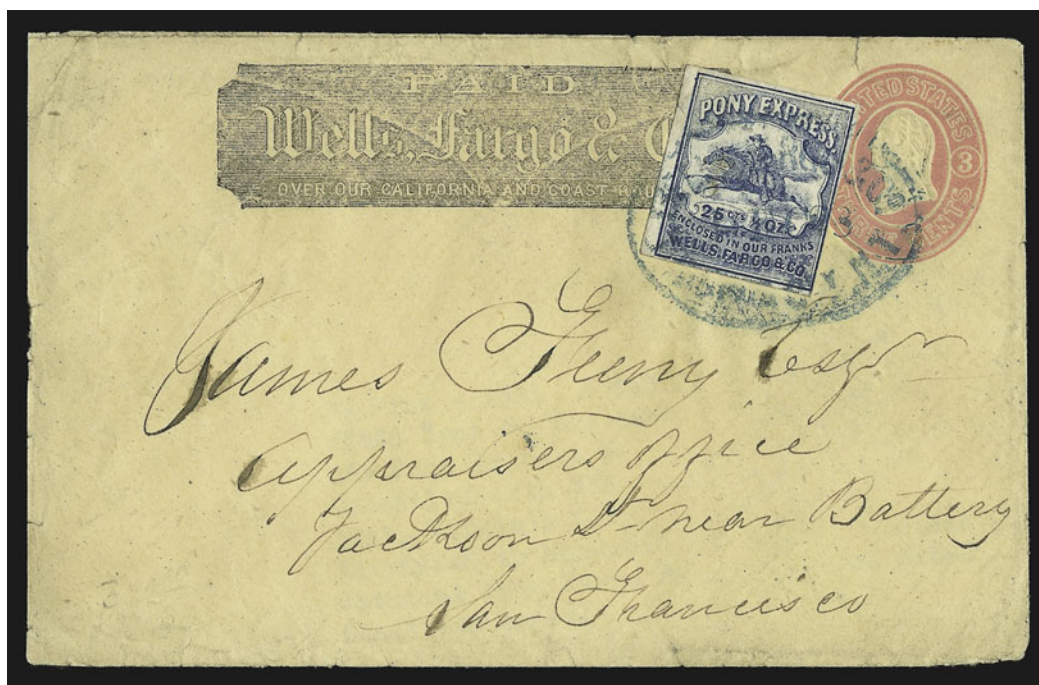 PAID
Wells, Fargo &
OVER OUR CALIFORNIA AND COAST
PONY EXPRESS
25 cts ½ OZ
ENCLOSED IN OUR FRANKS
WELLS, FARGO & CO.
UNITED STATES
3
THREE CENTS
James Feeny Esqr
Appraisers Office
Jackson St near Battery
San Francisco